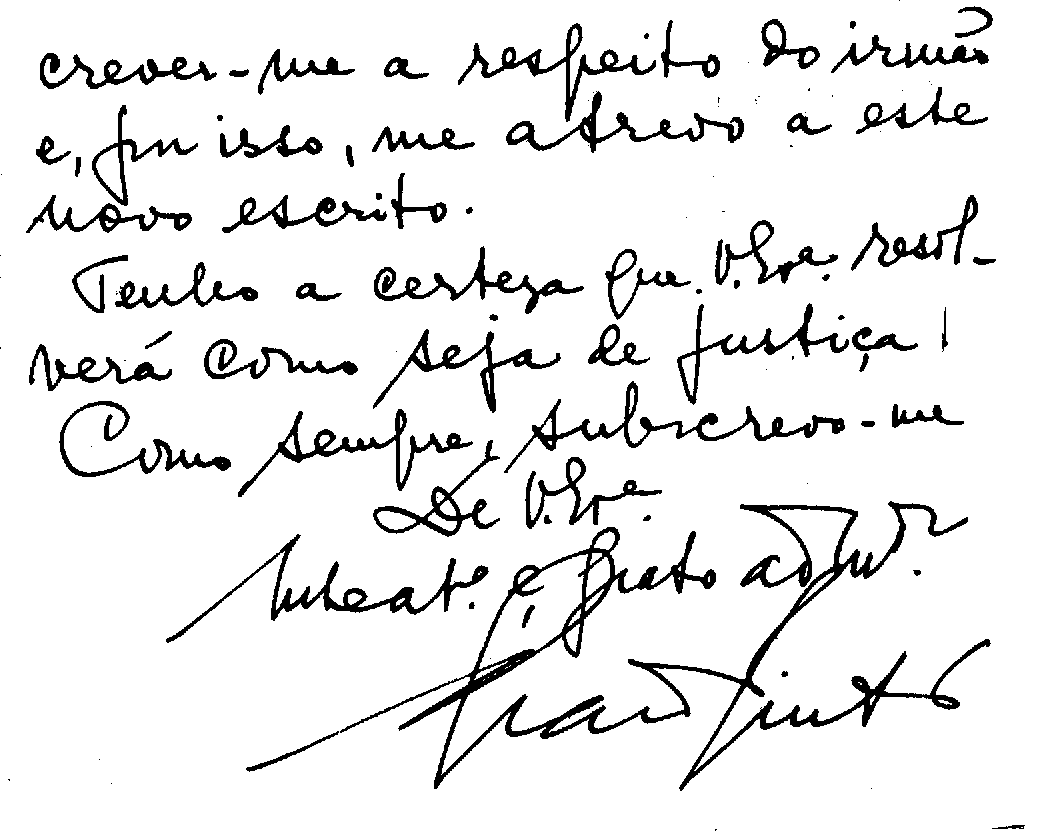 crever-me a respeito do irmão
e, por isso, me atrevo a este
novo escrito.
Tenho a certeza que V. Exª. resol-
verá como seja de justiça!
Como sempre, subscrevo-me
De V. Exª.
Mto atº. e grato admor.